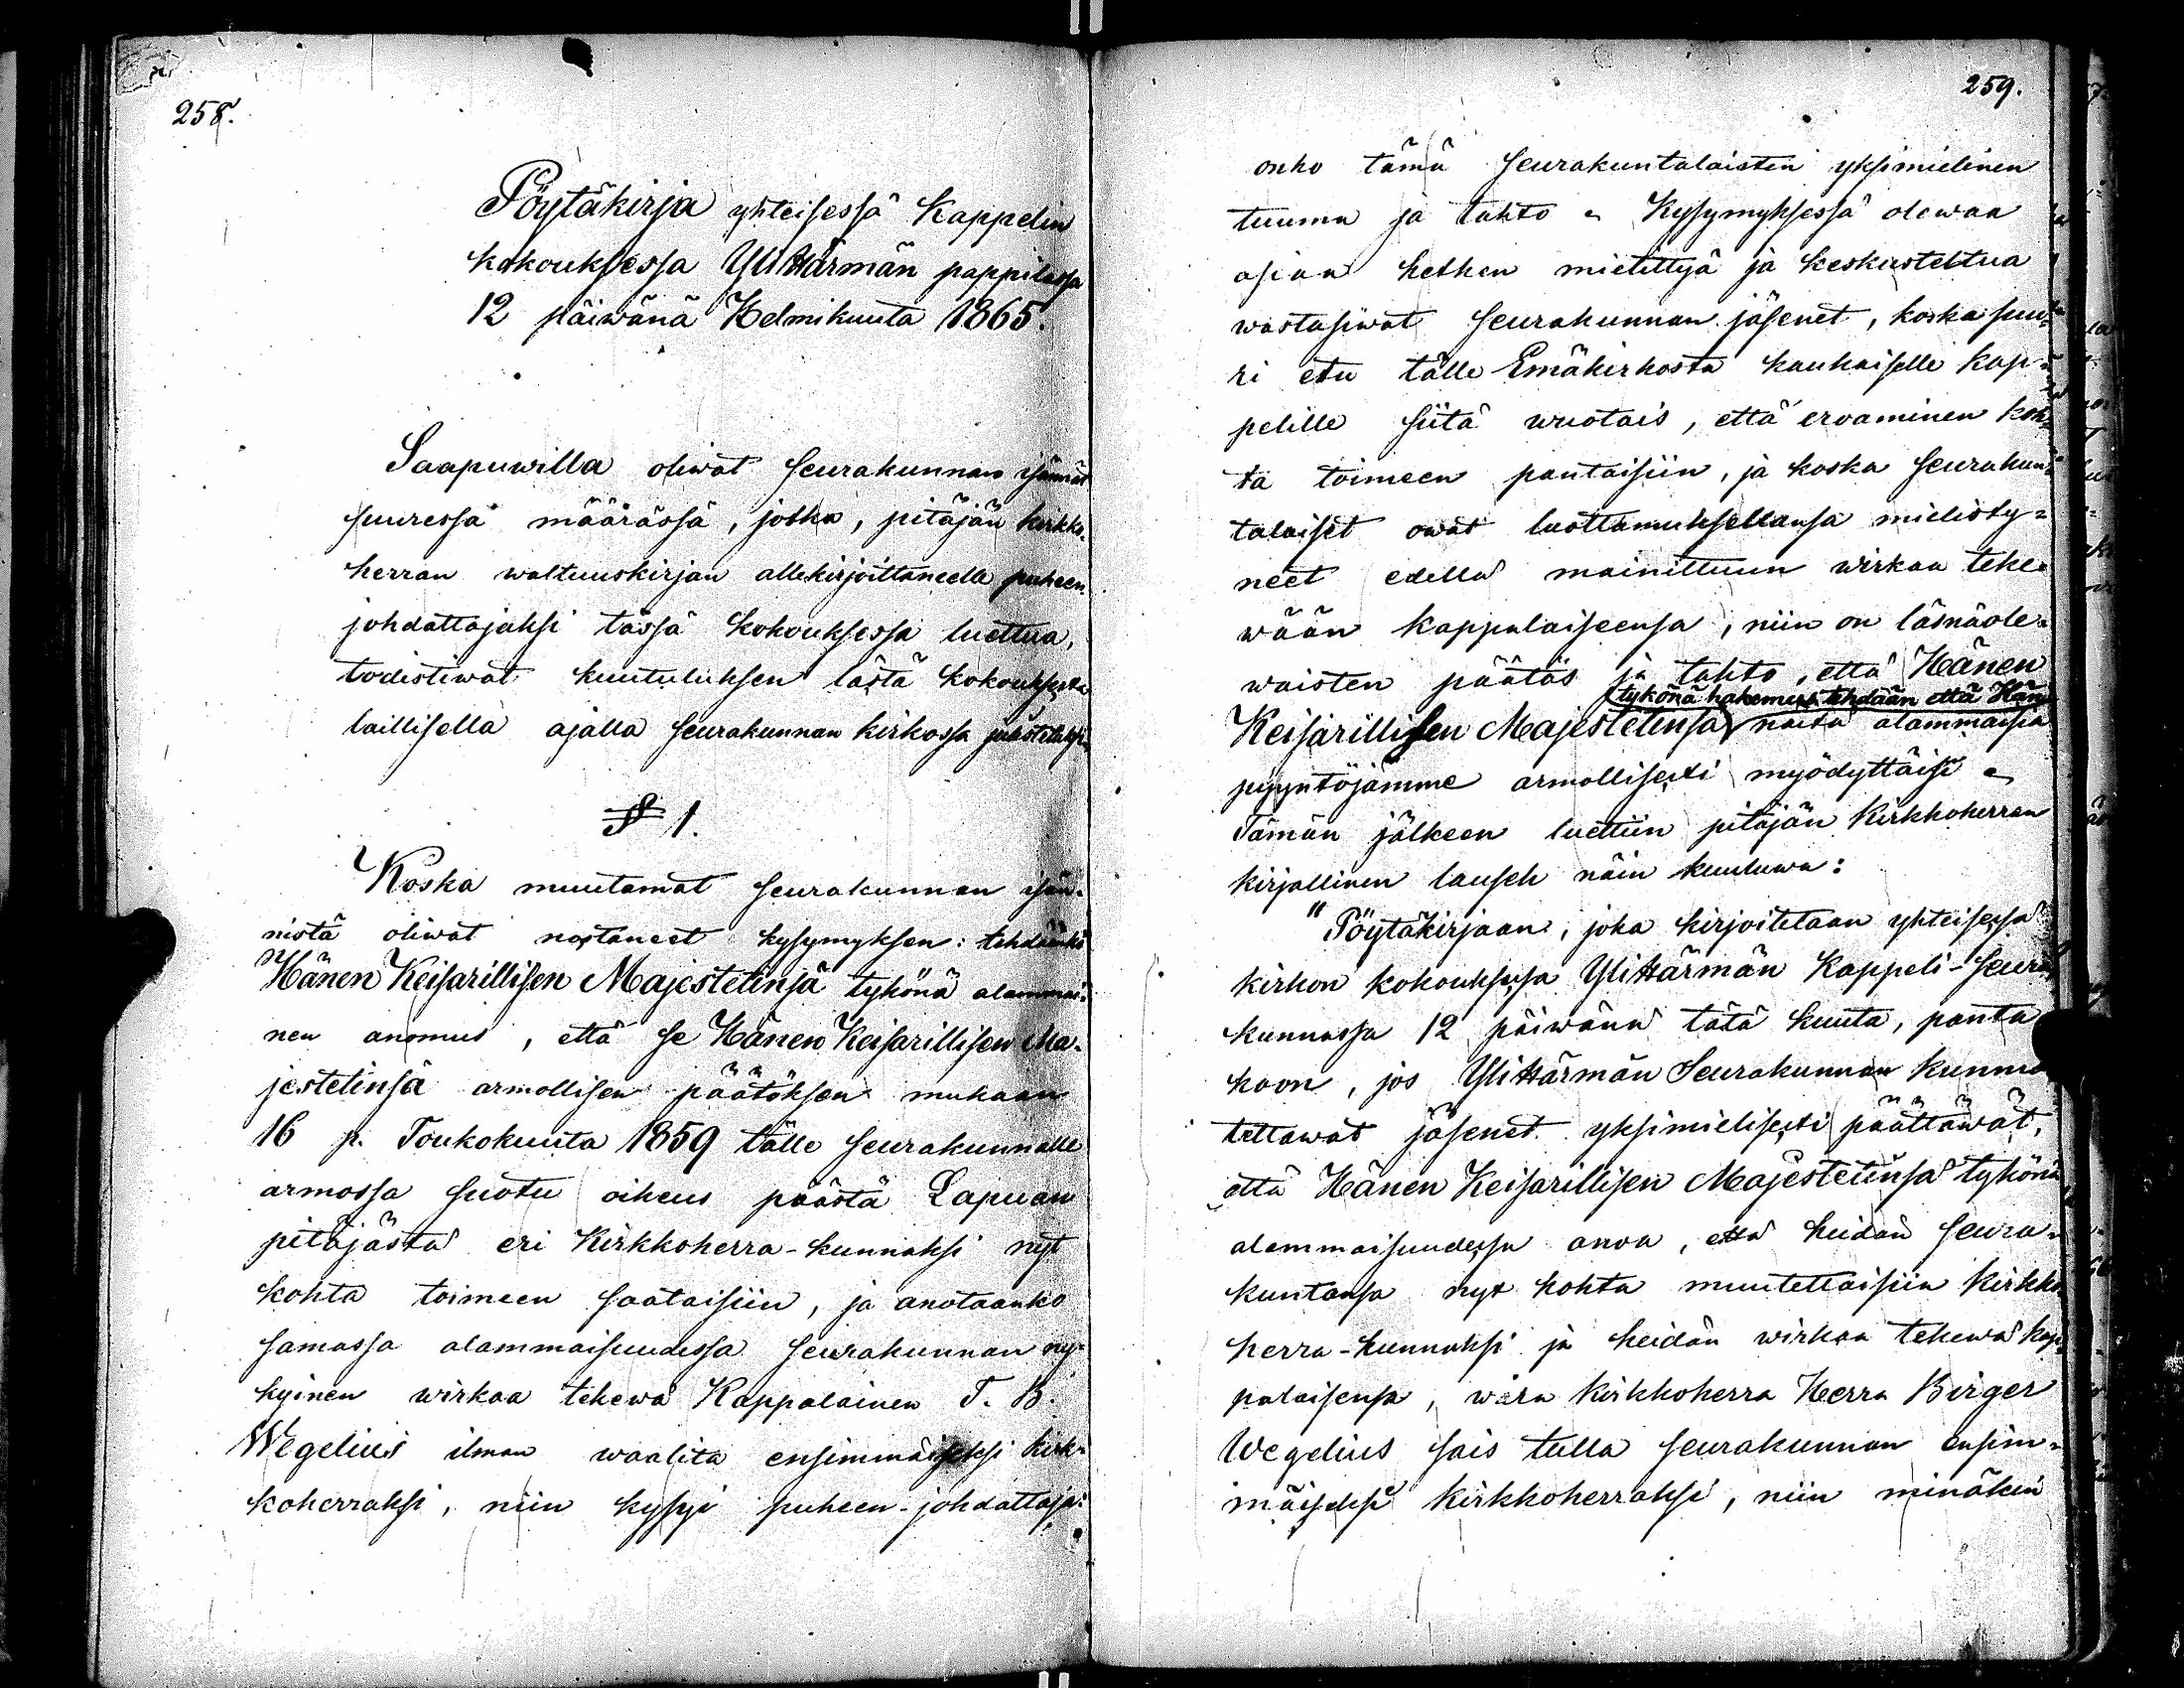 258.
Pöytäkirja yhteisessä Kappelin
kokouksessa YliHärmän pappilassa
12 päiwänä Helmikuuta 1865.
Saapuwilla oliwat seurakunnan isännät
suuressa määrässä, jotka, pitäjän kirkko-
herran waltuuskirjan allekirjoittaneelle puheen-
johdattajaksi tässä kokouksessa luettua,
todistiwat kuutuluksen tästä kokouksesta
laillisella ajalla seurakunnan kirkossa julistetuksi.
§ 1.
Koska muutamat seurakunnan isän-
nistä oliwat nostaneet kysymyksen: tehdäänkö
Hänen Keisarillisen Majestetinsä tykönä alammai-
nen anomus, että se Hänen Keisarillisen Ma-
jestetinsä armollisen päätöksen mukaan
16 p. Toukokuuta 1859 tälle seurakunnalle
armossa suotu oikeus päästä Lapuan
pitäjästä eri Kirkkoherra-kunnaksi nyt
kohta toimeen saataisiin, ja anotaanko
samassa alammaisuudessa seurakunnan ny-
kyinen wirkaa tekewä Kappalainen T. B.
Wegelius ilman waalita ensimmäiseksi kirk-
koherraksi, niin kysyi puheen-johdattaja:
259.
onko tämä seurakuntalaisten yksimielinen
tuuma ja tahto. Kysymyksessä olewaa
asiaa hetken mietittyä ja keskusteltua
wastasiwat seurakunnan jäsenet, koska suu-
ri etu tälle Emäkirkosta kaukaiselle kap-
pelille siitä wuotais, että eroaminen koh-
ta toimeen pantaisiin, ja koska seurakun-
talaiset owat luottamuksellansa mielisty-
neet edellä mainittuun wirkaa teke-
wään kappalaiseensa, niin on läsnäole-
waisten päätös ja tahto, että Hänen
tykönä hakemus tehdään että Hän
Keisarillisen Majestetinsä näitä alammaisia
pyyntöjämme armollisesti myödyttäisi.
Tämän jälkeen luettiin pitäjän Kirkkoherran
kirjallinen lauseh näin kuuluwa:
"Pöytäkirjaan, joka kirjoitetaan yhteisessä
kirkon kokouksessa YliHärmän Kappeli-seura-
kunnassa 12 päiwänä tätä kuuta, panta
koon, jos YliHärmän Seurakunnan kunnioi-
tettawat jäsenet yksimielisesti päättäwät,
että Hänen Keisarillisen Majestetinsä tykönä
alammaisuudessa anoa, että heidän seura-
kuntansa nyt kohta muutettaisiin kirkko-
herra-kunnaksi ja heidän wirkaa tekewä kap-
palaisensa, wara kirkkoherra Herra Birger
Wegelius sais tulla seurakunnan ensim-
mäiseksi kirkkoherraksi, niin minäkin